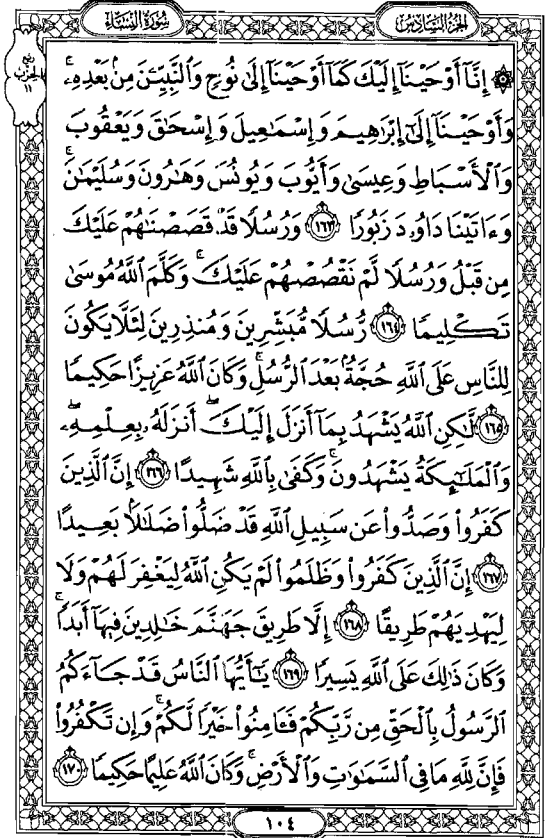 سُورَةُ النِّسَاءِ
الجُزْءُ السَّادِسُ
رُبْع
الحِزْب
١١
۞ إِنَّآ أَوْحَيْنَآ إِلَيْكَ كَمَآ أَوْحَيْنَآ إِلَىٰ نُوحٍ وَٱلنَّبِيِّـۧنَ مِنۢ بَعْدِهِۦ ۚ
وَأَوْحَيْنَآ إِلَىٰٓ إِبْرَٰهِيمَ وَإِسْمَٰعِيلَ وَإِسْحَٰقَ وَيَعْقُوبَ
وَٱلْأَسْبَاطِ وَعِيسَىٰ وَأَيُّوبَ وَيُونُسَ وَهَٰرُونَ وَسُلَيْمَٰنَ ۚ
وَءَاتَيْنَا دَاوُۥدَ زَبُورًا ١٦٣ وَرُسُلًا قَدْ قَصَصْنَٰهُمْ عَلَيْكَ
مِن قَبْلُ وَرُسُلًا لَّمْ نَقْصُصْهُمْ عَلَيْكَ ۚ وَكَلَّمَ ٱللَّهُ مُوسَىٰ
تَكْلِيمًا ١٦٤ رُّسُلًا مُّبَشِّرِينَ وَمُنذِرِينَ لِئَلَّا يَكُونَ
لِلنَّاسِ عَلَى ٱللَّهِ حُجَّةٌۢ بَعْدَ ٱلرُّسُلِ ۚ وَكَانَ ٱللَّهُ عَزِيزًا حَكِيمًا
١٦٥ لَّٰكِنِ ٱللَّهُ يَشْهَدُ بِمَآ أَنزَلَ إِلَيْكَ ۖ أَنزَلَهُۥ بِعِلْمِهِۦ ۖ
وَٱلْمَلَٰٓئِكَةُ يَشْهَدُونَ ۚ وَكَفَىٰ بِٱللَّهِ شَهِيدًا ١٦٦ إِنَّ ٱلَّذِينَ
كَفَرُوا۟ وَصَدُّوا۟ عَن سَبِيلِ ٱللَّهِ قَدْ ضَلُّوا۟ ضَلَٰلًۢا بَعِيدًا
١٦٧ إِنَّ ٱلَّذِينَ كَفَرُوا۟ وَظَلَمُوا۟ لَمْ يَكُنِ ٱللَّهُ لِيَغْفِرَ لَهُمْ وَلَا
لِيَهْدِيَهُمْ طَرِيقًا ١٦٨ إِلَّا طَرِيقَ جَهَنَّمَ خَٰلِدِينَ فِيهَآ أَبَدًا ۚ
وَكَانَ ذَٰلِكَ عَلَى ٱللَّهِ يَسِيرًا ١٦٩ يَٰٓأَيُّهَا ٱلنَّاسُ قَدْ جَآءَكُمُ
ٱلرَّسُولُ بِٱلْحَقِّ مِن رَّبِّكُمْ فَـَٔامِنُوا۟ خَيْرًا لَّكُمْ ۚ وَإِن تَكْفُرُوا۟
فَإِنَّ لِلَّهِ مَا فِى ٱلسَّمَٰوَٰتِ وَٱلْأَرْضِ ۚ وَكَانَ ٱللَّهُ عَلِيمًا حَكِيمًا ١٧٠
١٠٤